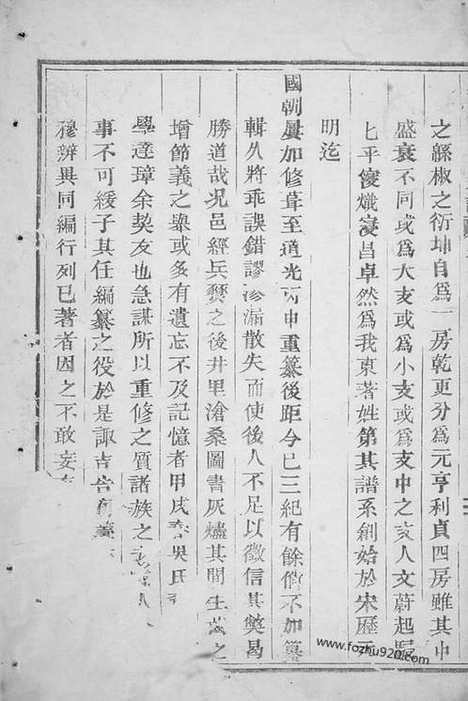 之緜椒之衍坤自爲一房乾更分爲元亨利貞四房雖其中
盛衰不同或爲大支或爲小支或爲支中之支人文蔚起
七平寖熾寖昌卓然爲我東著姓第其譜系創始於宋歷
明迄
國朝屢加修葺至道光丙申重纂後距今已三紀有餘倘不加纂
輯久將乖誤錯謬滲漏散失而使後人不足以徵信其獘曷
勝道哉况邑經兵燹之後井里滄桑圖書灰燼其間生歲之
增節義之槩或多有遺忘不及記憶者甲戌 吳氏
學達璋余契友也急謀所以重修之質諸族之
事不可緩子其任編纂之役於是諏吉告
穆辨異同編行列已著者因之不敢妄
www.fozhu920.com